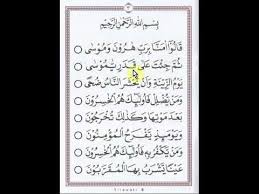 بِسْمِ اللهِ الرَّحْمٰنِ الرَّحِيْمِ
قَالُوْآ اٰمَنَّا بِرَبِّ هٰرُوْنَ وَمُوْسٰى
ثُمَّ جِئْتَ عَلٰى قَدَرٍ يّٰمُوْسٰى
يَوْمُ الزِّيْنَةِ وَاَنْ يُّحْشَرَ النَّاسُ ضُحًى
وَمَنْ يُّضْلِلْ فَاُولٰٓئِكَ هُمُ الْخٰسِرُوْنَ
بَعْدَ مَوْتِهَا وَكَذٰلِكَ تُخْرَجُوْنَ
وَيَوْمَئِذٍ يَّفْرَحُ الْمُؤْمِنُوْنَ
وَمَنْ يَّكْفُرْ بِهٖ فَاُولٰٓئِكَ هُمُ الْخٰسِرُوْنَ
يَشْرَبُ بِهَا الْمُقَرَّبُوْنَ